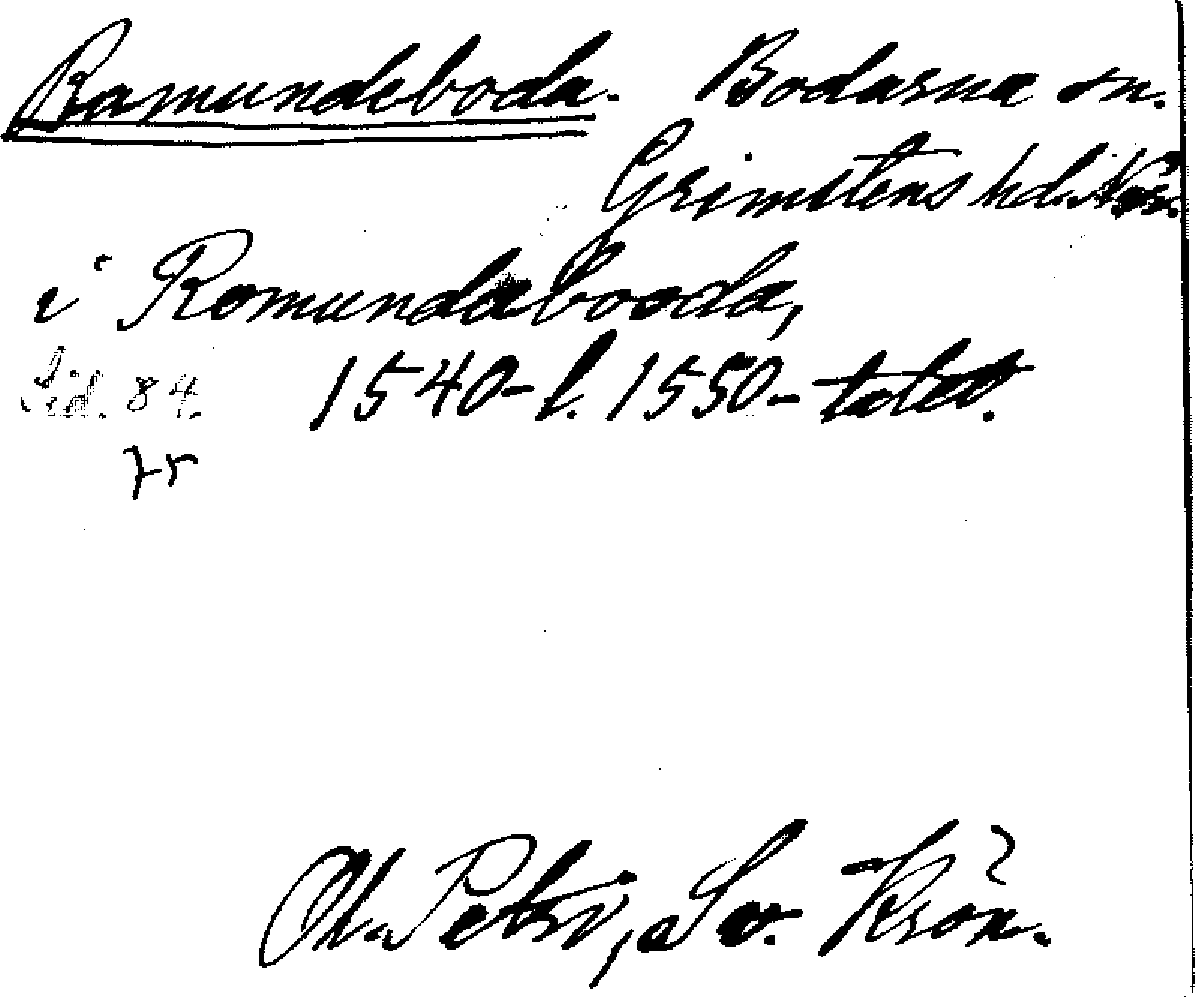 Ramundeboda. Bodarna sn.
Grimstens hd. När.
i Romundabooda,
Sid. 84. 1540- l. 1550-talet.
Ol. Petri, Sv. Krön.